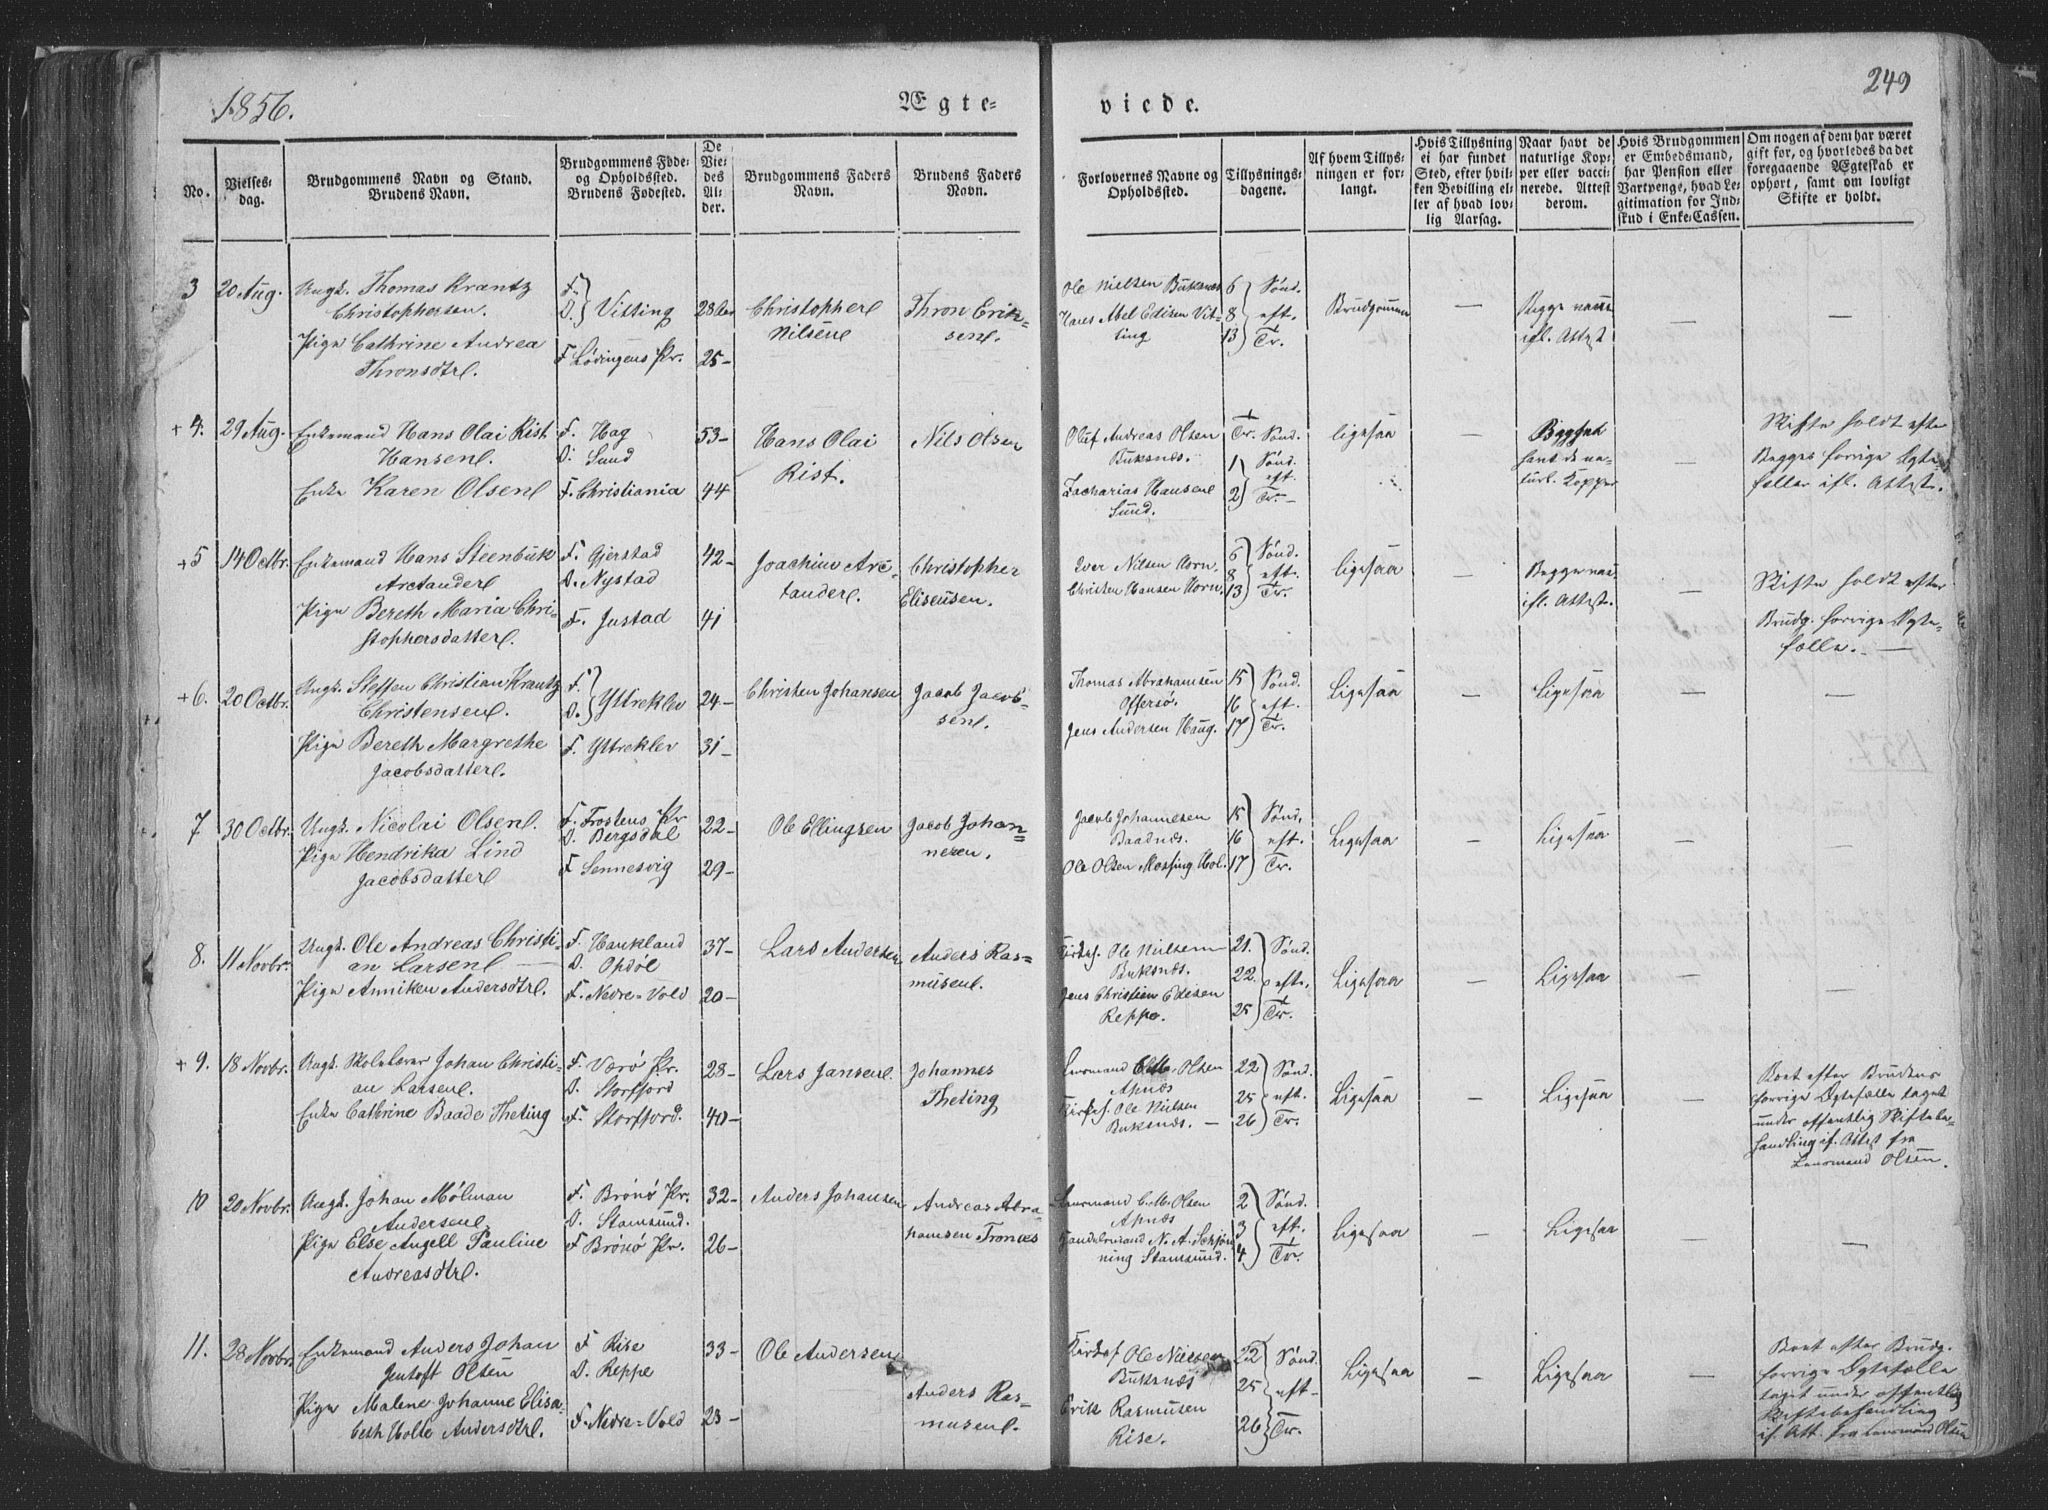 1856.
Ægte-
viede.
249
No.
Vielses-
dag.
Brudgommens Navn og Stand.
Brudens Navn.
Brudgommens Føde-
og Opholdssted.
Brudens Fødested.
De
Vie-
des
Al-
der.
Brudgommens Faders
Navn.
Brudens Faders
Navn.
Forlovernes Navne og
Opholdssted.
Tillysnings-
dagene.
Af hvem Tillys-
ningen er for-
langt.
Hvis Tillysning
ei har fundet
Sted, efter hvil-
ken Bevilling el-
ler af hvad lov-
lig Aarsag.
Naar havt de
naturlige Kop-
per eller vacci-
nerede. Attest
derom.
Hvis Brudgommen
er Embedsmand,
har Pension eller
Vartpenge, hvad Le-
gitimation for Ind-
skud i Enke-Cassen.
Om nogen af dem har været
gift før, og hvorledes da det
foregaaende Ægteskab er
ophørt, samt om lovligt
Skifte er holdt.
3 20 Aug. Ungk. Thomas Krantz
Christophersen.
F.
O. Vitting 28
Christopher
Nilsen
Thron Erik-
sen.
Pige Cathrine Andrea
Thronsdtr.
F Lødingens Pr. 25-
Ole Nielsen Buksnes
Hans Abel Edisen Vit-
ting
6 Sønd.
8 eft.
13 Tr.
Brudgommen
—
Begge vacc
ifl. Attest
—
—
+ 4. 29 Aug. Enkemand Hans Olai Rist
Hansen.
F. Hag
O. Sund
53-
Hans Olai
Rist.
Nils Olsen
Enke Karen Olsen
F. Christiania 44
Oluf Andreas Olsen
Buksnes.
Zacharias Hansen
Sund.
Tr. Sønd.
1 Sønd.
eft.
2 Tr.-
ligesaa
—
havt de na-
turl. Kopper
—
Skifte holdt efter
Begges forrige Ægte-
fæller ifl. Attest.
+ 5 14 Octbr. Enkemand Hans Steenbuk
Arctander
F. Gjerstad
O. Nystad
42-
Joachim Arc-
tander.
Christopher
Eliseusen.
Pige Bereth Maria Chri-
stophersdatter.
F. Justad 41
Iver Nilsen Horn.
Christen Hansen Horn.
6 Sønd.
8 eft.
13 Tr.
ligesaa
—
Begge vacc.
ifl. Attest.
—
Skifte holdt efter
Brudg. forrige Ægte-
fælle. —
+ 6. 20 Octbr. Ungk. Steffen Christian Krantz
Christensen.
F.
O. Yttreklev 24-
Christen Johansen
Jacob Jacob-
sen.
Pige Bereth Margrethe
Jacobsdatter.
F. Yttreklev 31-
Thomas Abrahamsen
Offersø.
Jens Andersen Haug.
15 Sønd.
16 eft.
17 Tr.
Ligesaa
—
Ligesaa
—
—
7 30 Octbr. Ungk. Nicolai Olsen.
F. Frostens Pr
O. Bergsdal
22-
Ole Ellingsen
Jacob Johan-
nesen.
Pige Hendrika Lind
Jacobsdatter
F Sennesvig 29-
Jacob Johannesen
Baadnæs.
Ole Olsen Mossing Hol.
15 Sønd.
16 eft.
17 Tr.
Ligesaa
—
Ligesaa
—
—
8. 11 Novbr. Ungk. Ole Andreas Christi-
an Larsen —
F. Haukland
O. Opdøl
37-
Lars Andersen
Anders Ras-
musen.
Pige Anniken Andersdtr.
F. Nedre-Vold 20-
Kirkes. Ole Nielsen
Buksnæs.
Jens Christian Edisen
Reppe.
21. Sønd.
22. eft.
25 Tr.
Ligesaa
—
Ligesaa
—
—
+ 9. 18 Novbr. Ungk. Skolelærer Johan Christi-
an Larsen.
F. Værø Pr.
O. Storfjord
28-
Lars Jansen.
Johannes
Theting
Enke Cathrine Baade Theting
F. Storfjord. 40-
Lensmand Olsen
Apnæs
Kirkes. Ole Nielsen
Buksnæs. —
22 Sønd.
25 eft.
26 Tr.
Ligesaa
—
Ligesaa
—
Boet efter Brudens
forrige Ægtefælle taget
under offentlig Skiftebe-
handling if. Attest fra
Lensmand Olsen.
10 20 Novbr. Ungk. Johan Mølman
Andersen
F. Brønø Pr.
O. Stamsund.
32-
Anders Johansen
Andreas Abra-
hamsen Tronæs
Pige Else Angell Pauline
Andreasdtr.
F Brønø Pr. 26-
Lensmand C. M. Olsen
Apnæs
Handelsmand N. A. Schjøn-
ning Stamsund.
2 Sønd.
3 eft.
4. Tr.
Ligesaa
—
Ligesaa
—
—
11. 28 Novbr. Enkemand Anders Johan
Jentoft Olsen
F Rise
O. Reppe
33-
Ole Andersen
Anders Ras-
musen.
Pige Malene Johanne Elisa-
beth Holte Andersdtr.
F. Nedre-Vold 23-
Kirkes. Ole Nielsen
Buksnæs
Erik Rasmusen
Rise.
22 Sønd.
25 eft-
26 Tr.
Ligesaa
—
Ligesaa
—
Boet efter Brudg.
forrige Ægtefælle
taget under offentlig
Skiftebehandling
if. Att. fra Lensmand Olsen